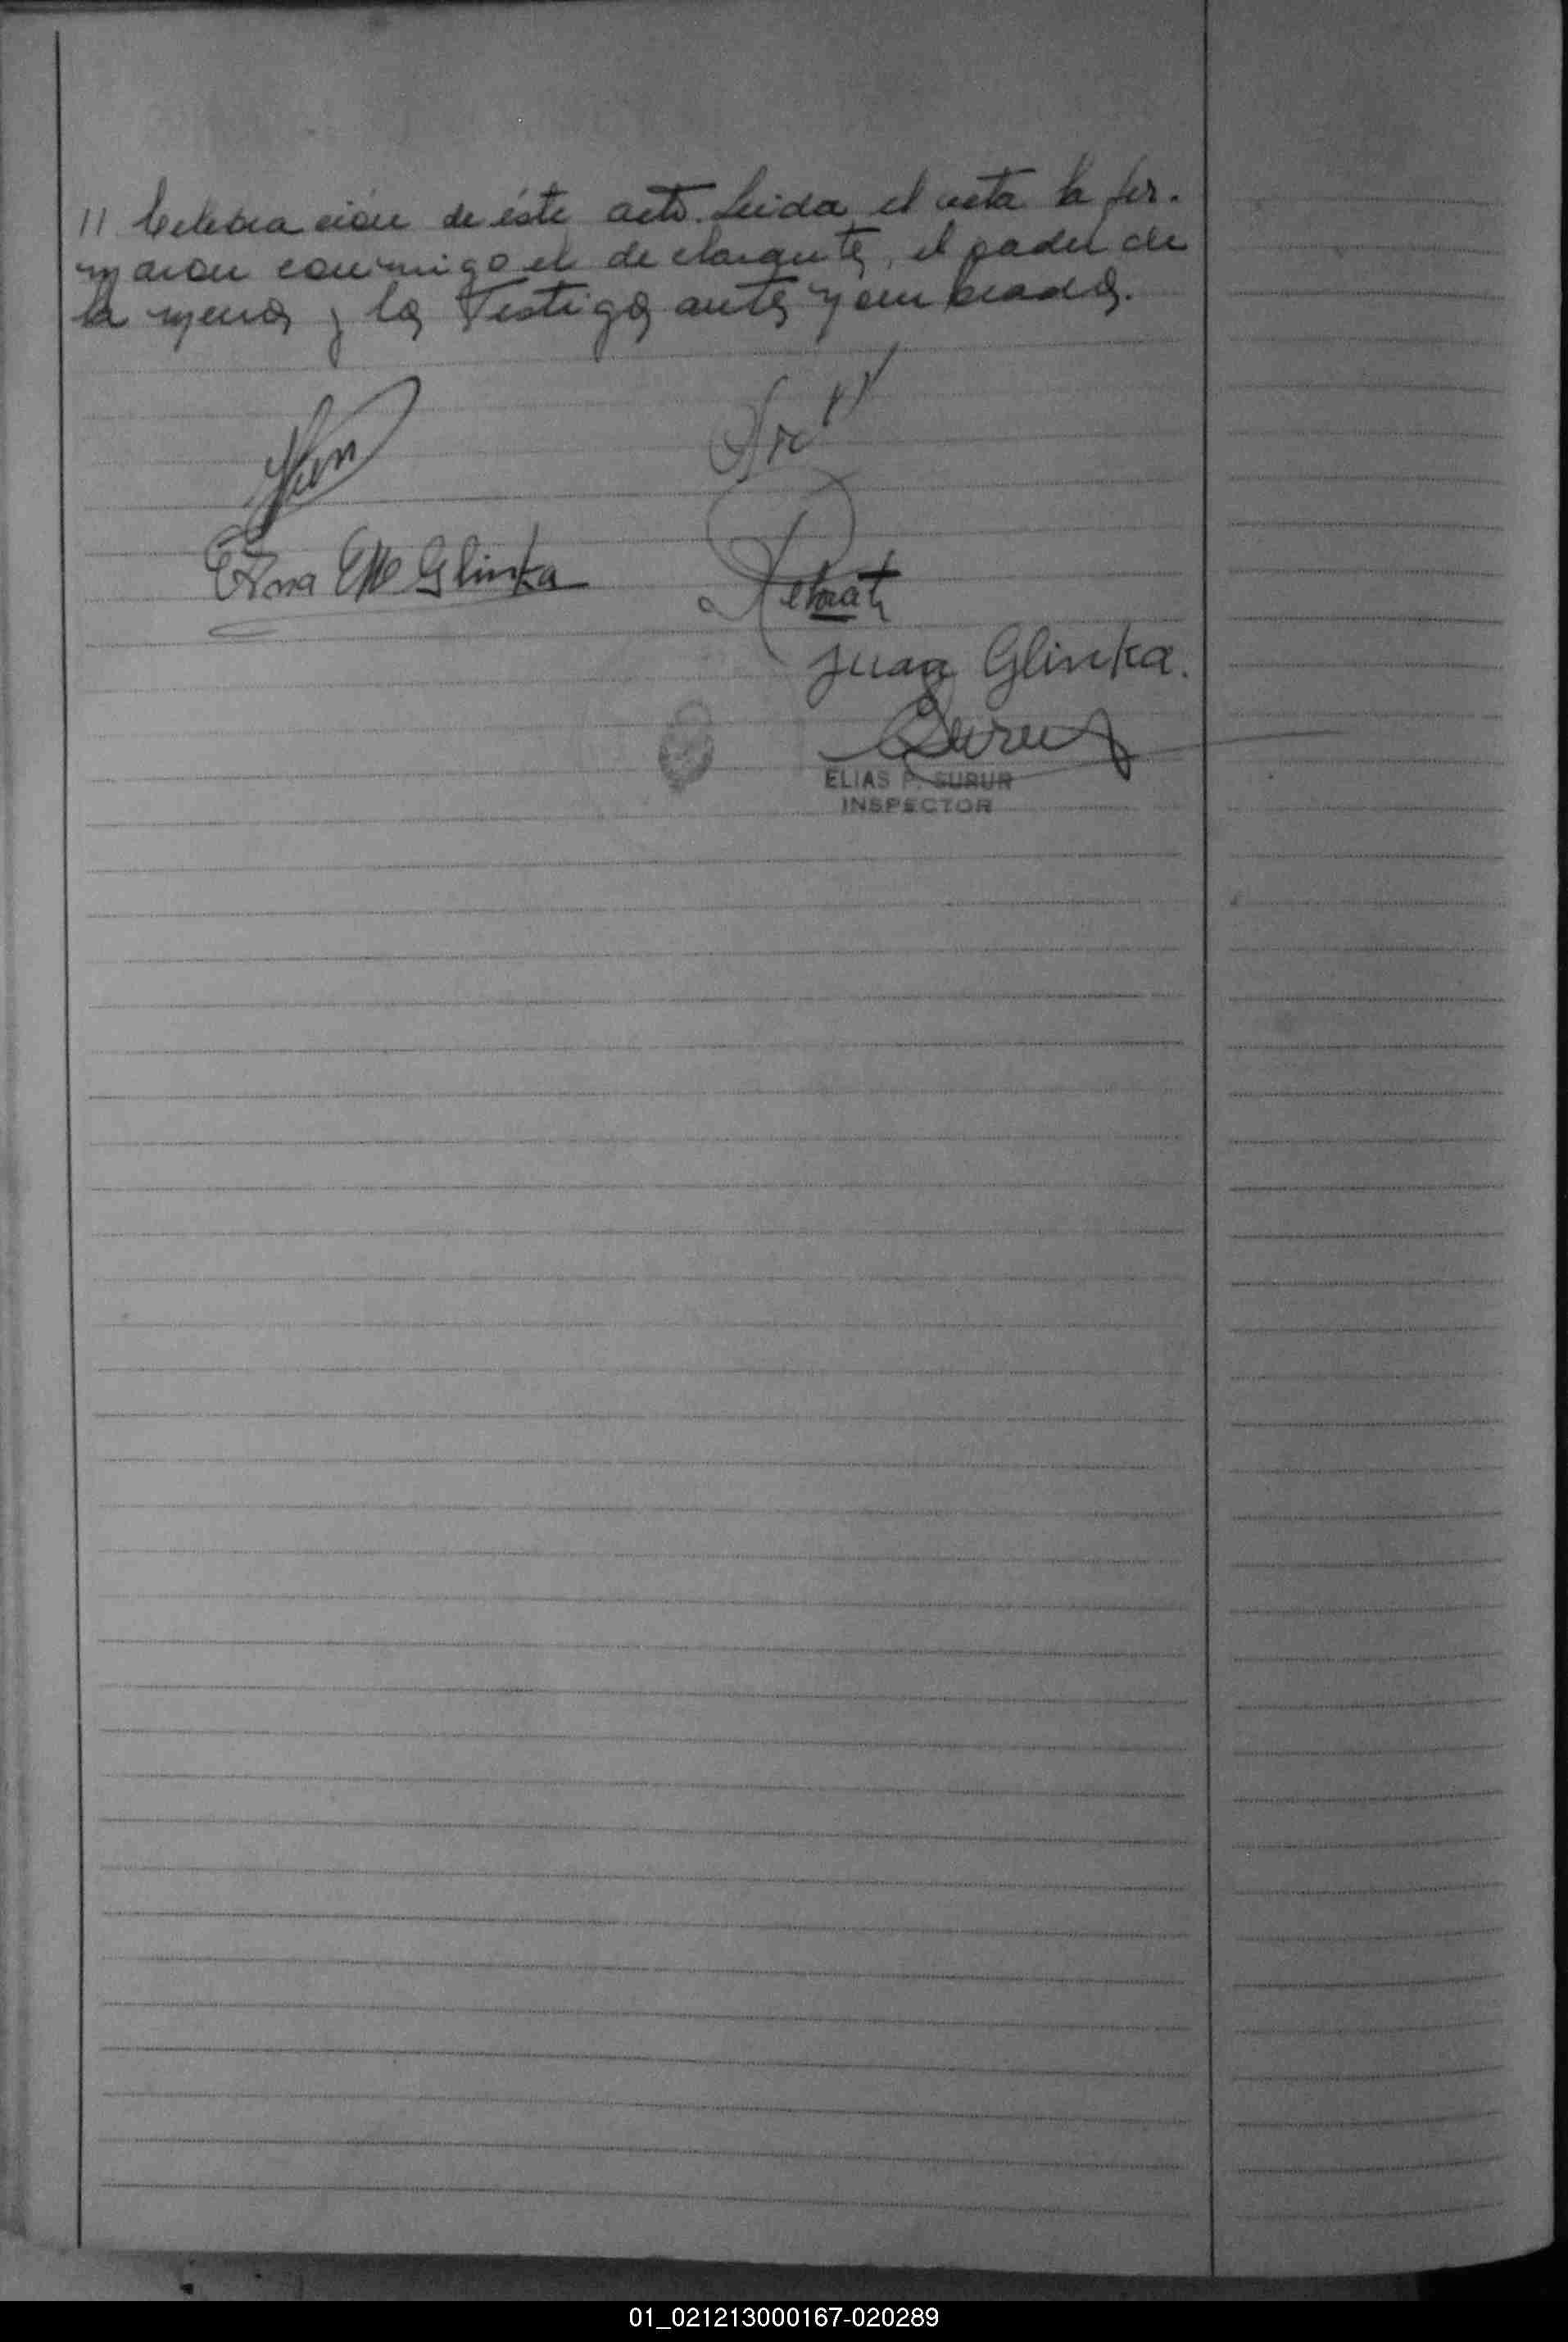 // Celebración de éste acto. Leida el acta la fir-
maron conmigo el declarante, el padre de
la menor y los Testigos antes nombrados.
Ana M Glinka
Juan Glinka.
Surur
ELIAS P. SURUR
INSPECTOR
01_021213000167-020289